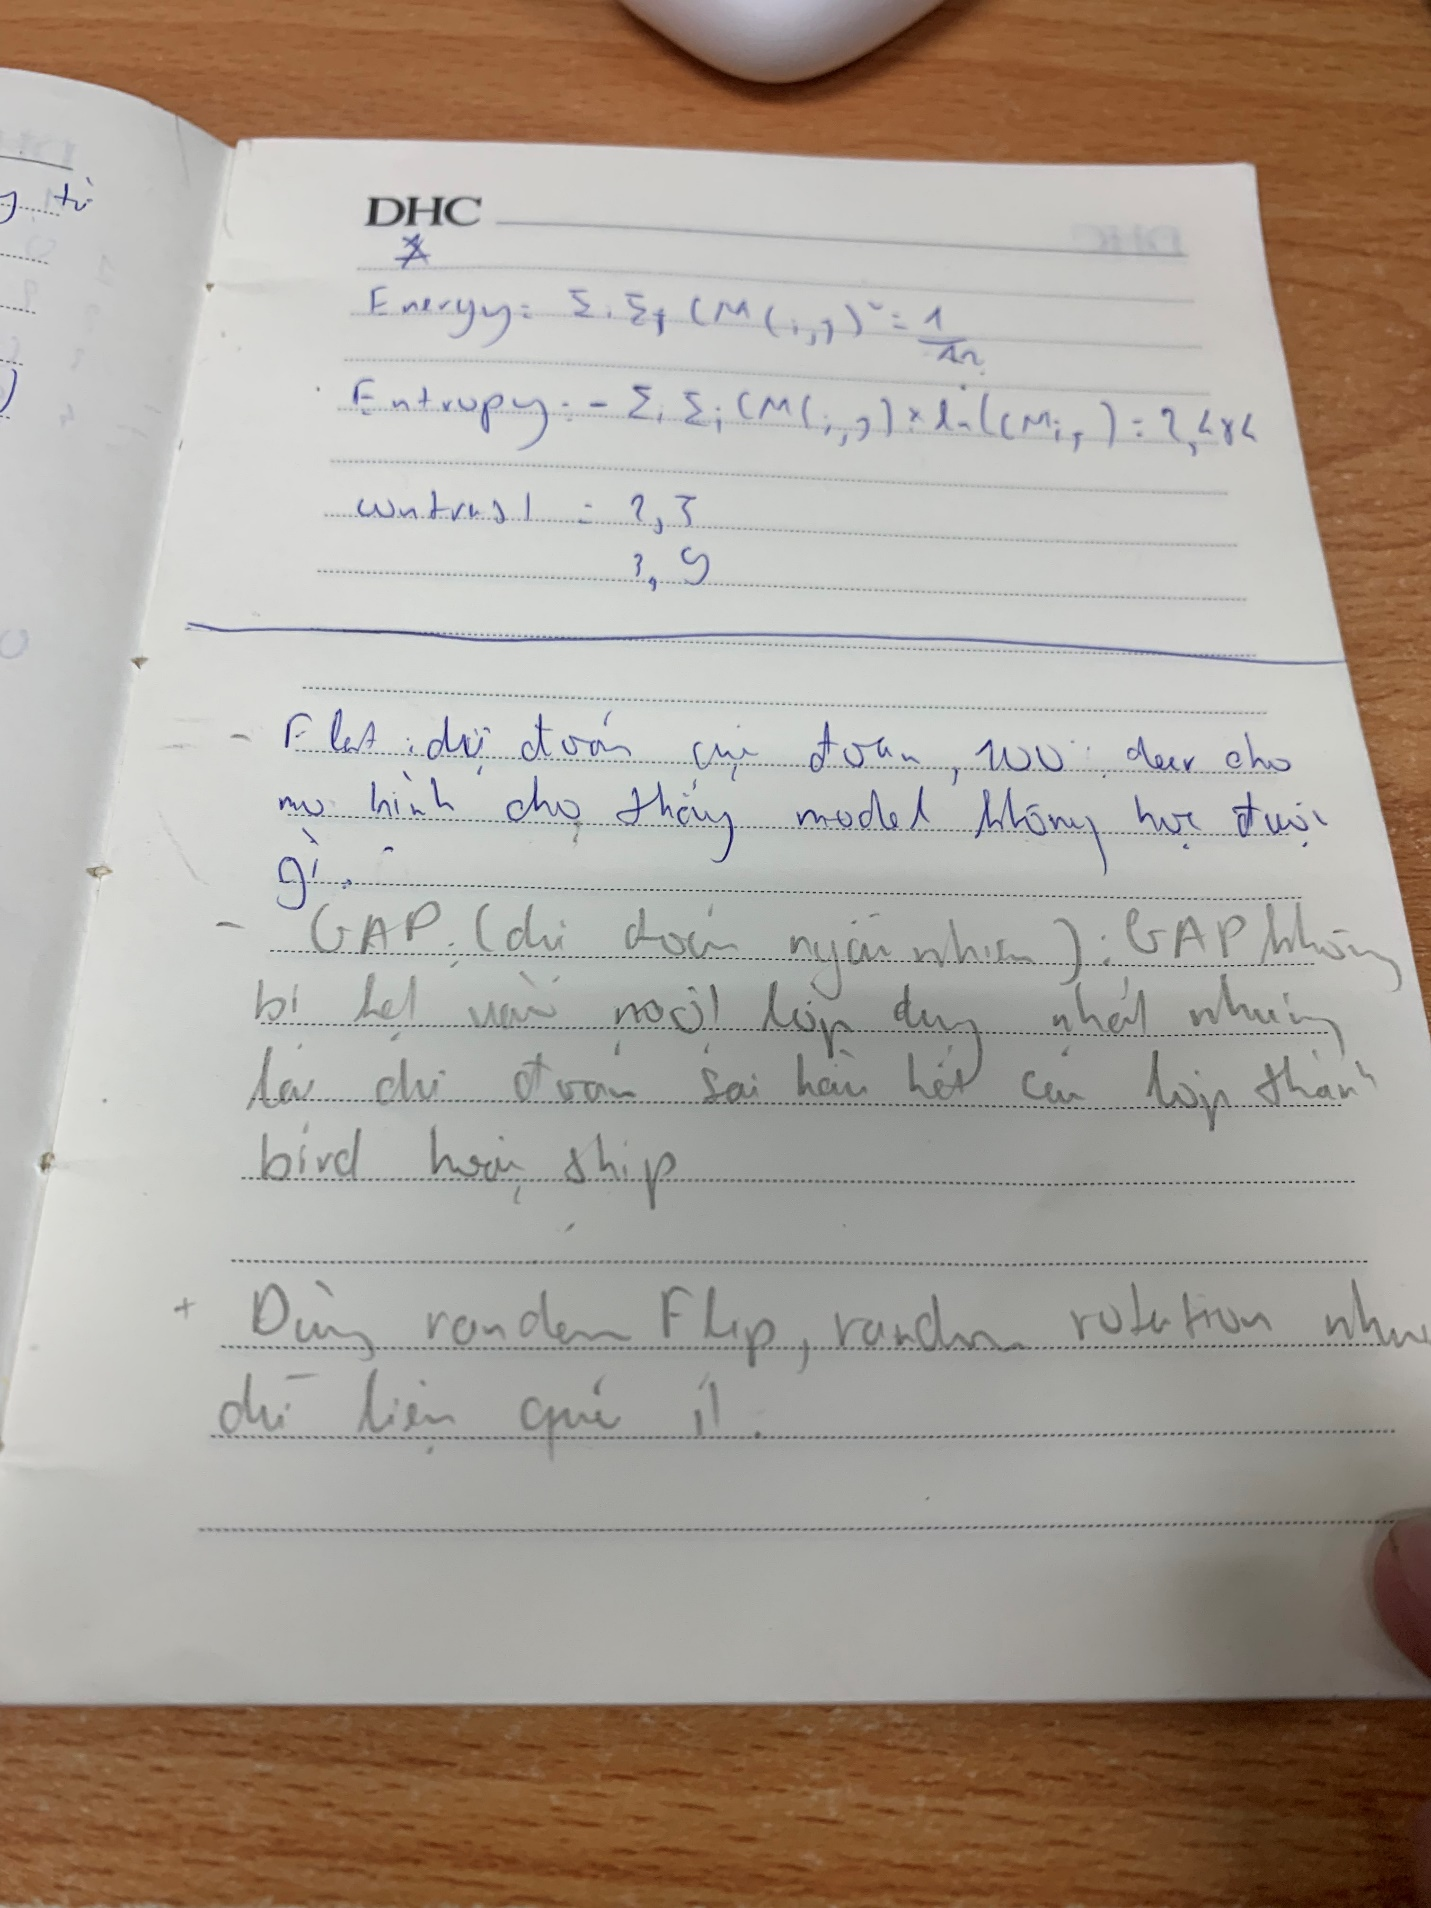 từ
DHC
Energy = Σi Σj (M(i,j)² = 1/12
Entropy = - Σi Σj (M(i,j) × ln((Mi,j) = 2,484
contrast = 2,3
3, 9
- Flat : dự đoán cực đoan, 100 deer cho
mô hình cho thấy model không học được
gì.
- GAP (dự đoán ngẫu nhiên) : GAP không
bị kẹt vào một lớp duy nhất nhưng
lại dự đoán sai hầu hết các lớp thành
bird hoặc ship
+ Dùng random Flip, random rotation như
dữ liệu quá ít.